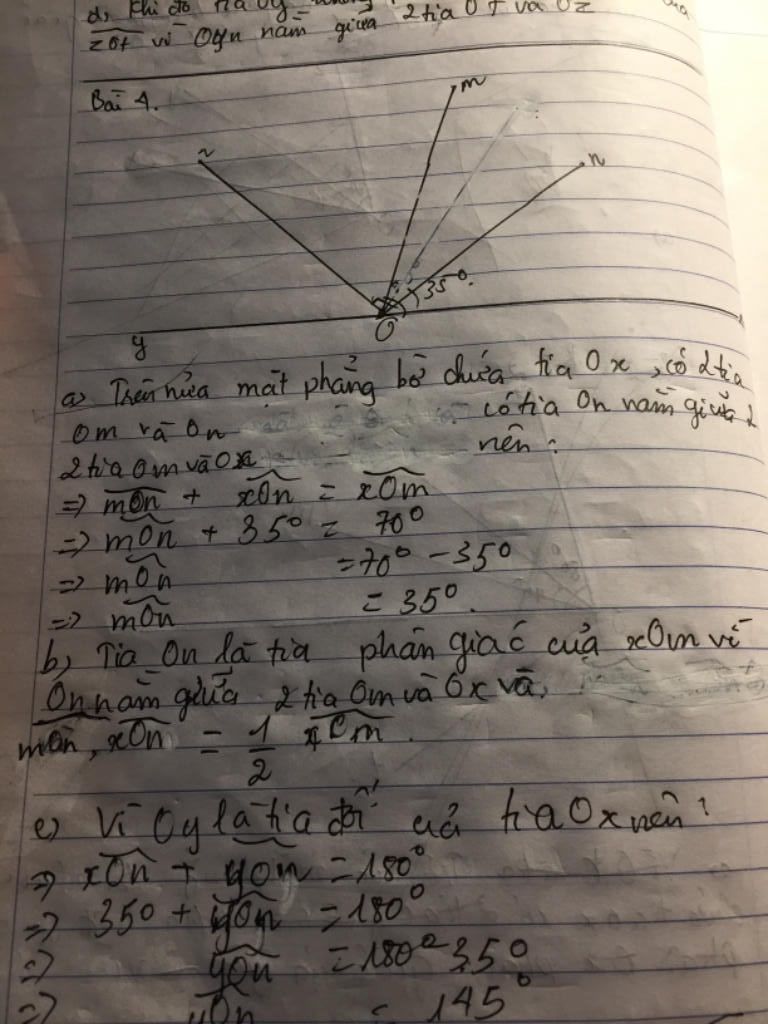 d, Khi đó tia Oy 2 tia Ot và Oz
zOt vì Oyn nằm giữa
Bài 4.
m
z
n
35°.
y
O
a) Trên nửa mặt phẳng bờ chứa tia Ox, có 2 tia
Om và On có tia On nằm giữa
2 tia Om và Ox nên:
=> mOn + xOn = xOm
=> mOn + 35° = 70°
=> mOn = 70° - 35°
=> mOn = 35°.
b, Tia On là tia phân giác của xOm vì
On nằm giữa 2 tia Om và Ox và,
mOn, xOn = 1/2 xOm.
c) Vì Oy là tia đối của tia Ox nên:
=> xOn + yOn = 180°
=> 35° + yOn = 180°
=> yOn = 180° - 35°
=> yOn = 145°